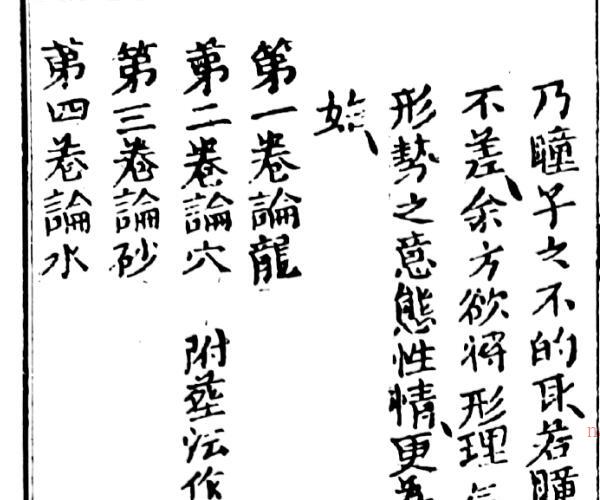 乃瞳子之不的耳若瞳
不差余方欲將形理
形勢之意態性情更
始
第一卷論龍
第二卷論穴 附葬法作
第三卷論砂
第四卷論水
n